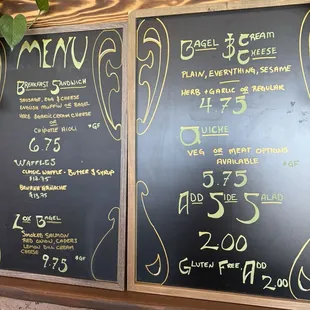 MENU
BREAKFAST SANDWICH
SAUSAGE, EGG & CHEESE
ENGLISH MUFFIN OR BAGEL
HERB GARLIC CREAM CHEESE
OR
CHIPOTLE AIOLI
*GF
6.75
WAFFLES
CLASSIC WAFFLE - BUTTER & SYRUP
$12.75
BANANA
$13.75
LOX BAGEL
SMOKED SALMON,
RED ONION, CAPERS
LEMON DILL CREAM
CHEESE
9.75
*GF
BAGEL & CREAM
CHEESE
PLAIN, EVERYTHING, SESAME
HERB + GARLIC OR REGULAR
4.75
QUICHE
VEG OR MEAT OPTIONS
AVAILABLE
*GF
5.75
ADD SIDE SALAD
2.00
GLUTEN FREE ADD
2.00